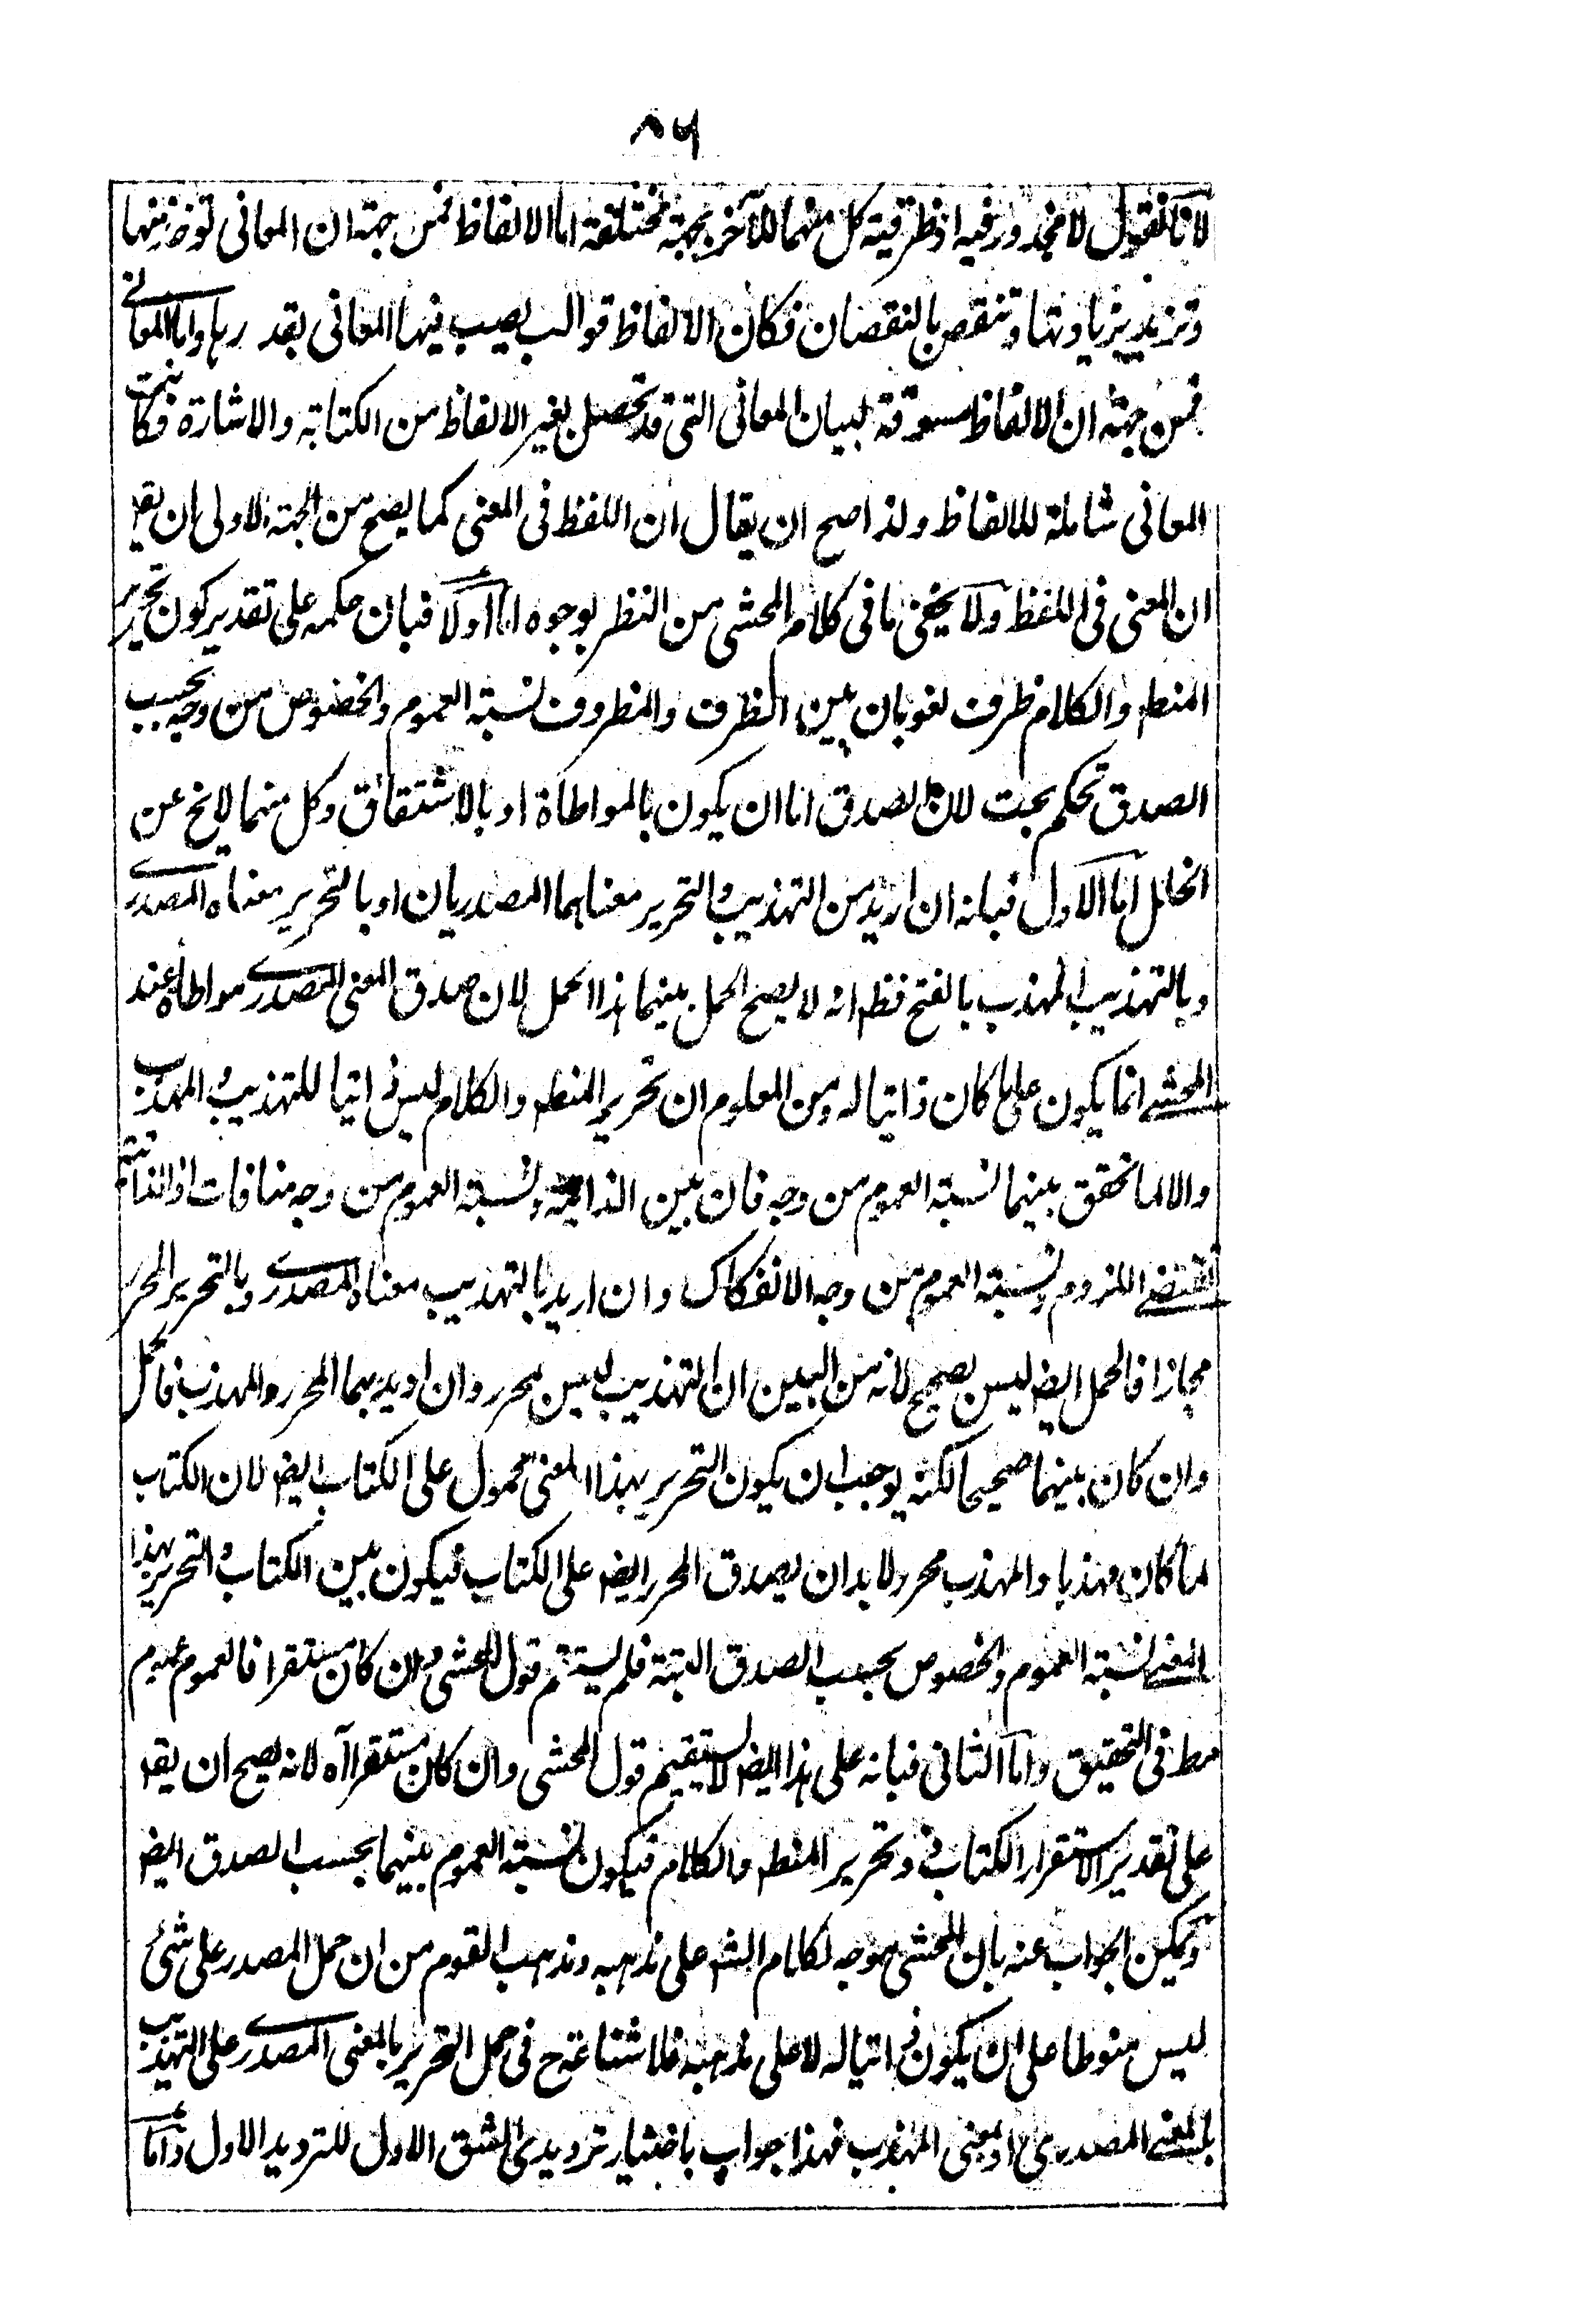 ٨٦
لانا نقول لا محذور فيه اذ ظرفية كل منهما للآخر بجهة مختلفة اما الالفاظ فمن جهة ان المعانى توخذ منها
وتزيد بزيادتها وتنقص بالنقصان فكان الالفاظ قوالب يصب فيها المعانى بقدرها واما المعانے
فمن جهة ان الالفاظ مسوقة لبيان المعانى التى قد تحصل بغير الالفاظ من الكتابة والاشارة فكانت
المعانى شاملة للالفاظ ولذا صح ان يقال ان اللفظ فى المعنى كما يصح من الجهة الاولى ان يقـ
ان المعنى فى اللفظ ولا يخفى ما فى كلام المحشى من النظر بوجوه اما اولا فبان حكمه على تقدير كون تحرير
المنطـ والكلام ظرف لغو بان بين الظرف والمظروف نسبة العموم والخصوص من وجه بحسب
الصدق تحكم بحت لان الصدق اما ان يكون بالمواطاة او بالاشتقاق وكل منهما لا يخ عن
الخلل اما الاول فبانه ان اريد من التهذيب والتحرير معناهما المصدريان او بالتحرير معناه المصدرے
وبالتهذيب المهذب بالفتح فظـ انه لا يصح الحمل بينهما هذا الحمل لان صدق المعنى المصدرے مواطاة عند
المحشے انما يكون على ما كان ذاتيا له ومن المعلوم ان تحرير المنطـ والكلام ليس ذاتيا للتهذيب والمهذب
والا لما تحقق بينهما نسبة العموم من وجه فان بين الذاتية ونسبة العموم من وجه منافات اذ الذاتية
تقتضے اللزوم ونسبة العموم من وجه الانفكاك وان اريد بالتهذيب معناه المصدرے وبالتحرير المحرر
مجازا فالحمل ايضـ ليس بصحيح لانه من البين ان التهذيب ليس بمحرر وان اريد بهما المحرر والمهذب فالحمل
وان كان بينهما صحيحا لكنه يوجب ان يكون التحرير بهذا المعنى محمول على الكتاب ايضـ لان الكتاب
لما كان مهذبا والمهذب محرر لا بد ان يصدق المحرر ايضـ على الكتاب فيكون بين الكتاب والتحرير بهذا
المعنے نسبة العموم والخصوص بحسب الصدق البتة فلم يستقم قول المحشى وان كان مستقرا فالعموم عموم
مط فى التحقيق واما الثانى فبانه على هذا ايضـ لا يستقيم قول المحشى وان كان مستقرا اه لانه يصح ان يقـ
على تقدير الاستقرار الكتاب ذو تحرير المنطـ والكلام فيكون نسبة العموم بينهما بحسب الصدق ايضـ
ويمكن الجواب عنه بان المحشى موجه لكلام الشـ على مذهبه ومذهب القوم من ان حمل المصدر على شئ
ليس منوطا على ان يكون ذاتيا له لا على مذهبه فلا شناعة ح فى حمل التحرير بالمعنى المصدرے على التهذيب
بالمعنے المصدرى او بمعنى المهذب فهذا جواب باختيار ترديدى الشق الاول للترديد الاول واما